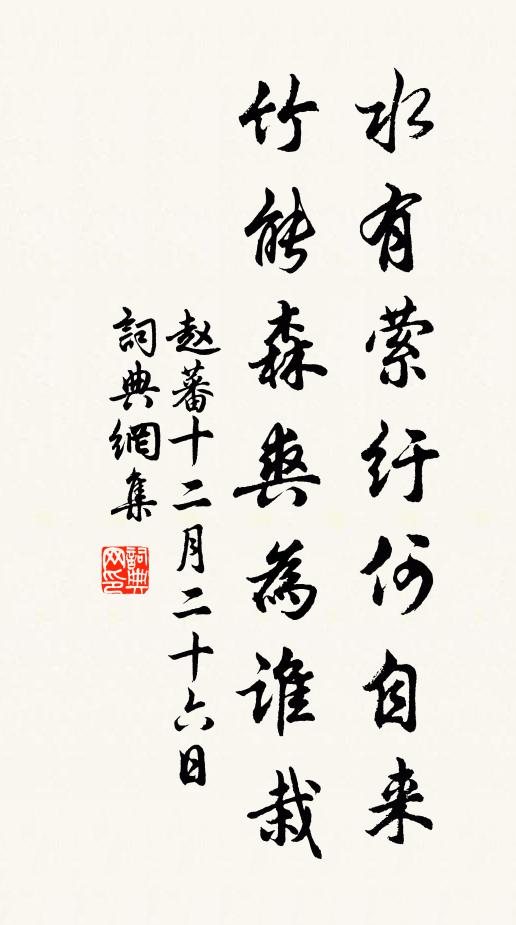 水有萦纡何自来
竹能森爽為誰栽
赵蕃十二月二十六日
詞典網集
詞典网印